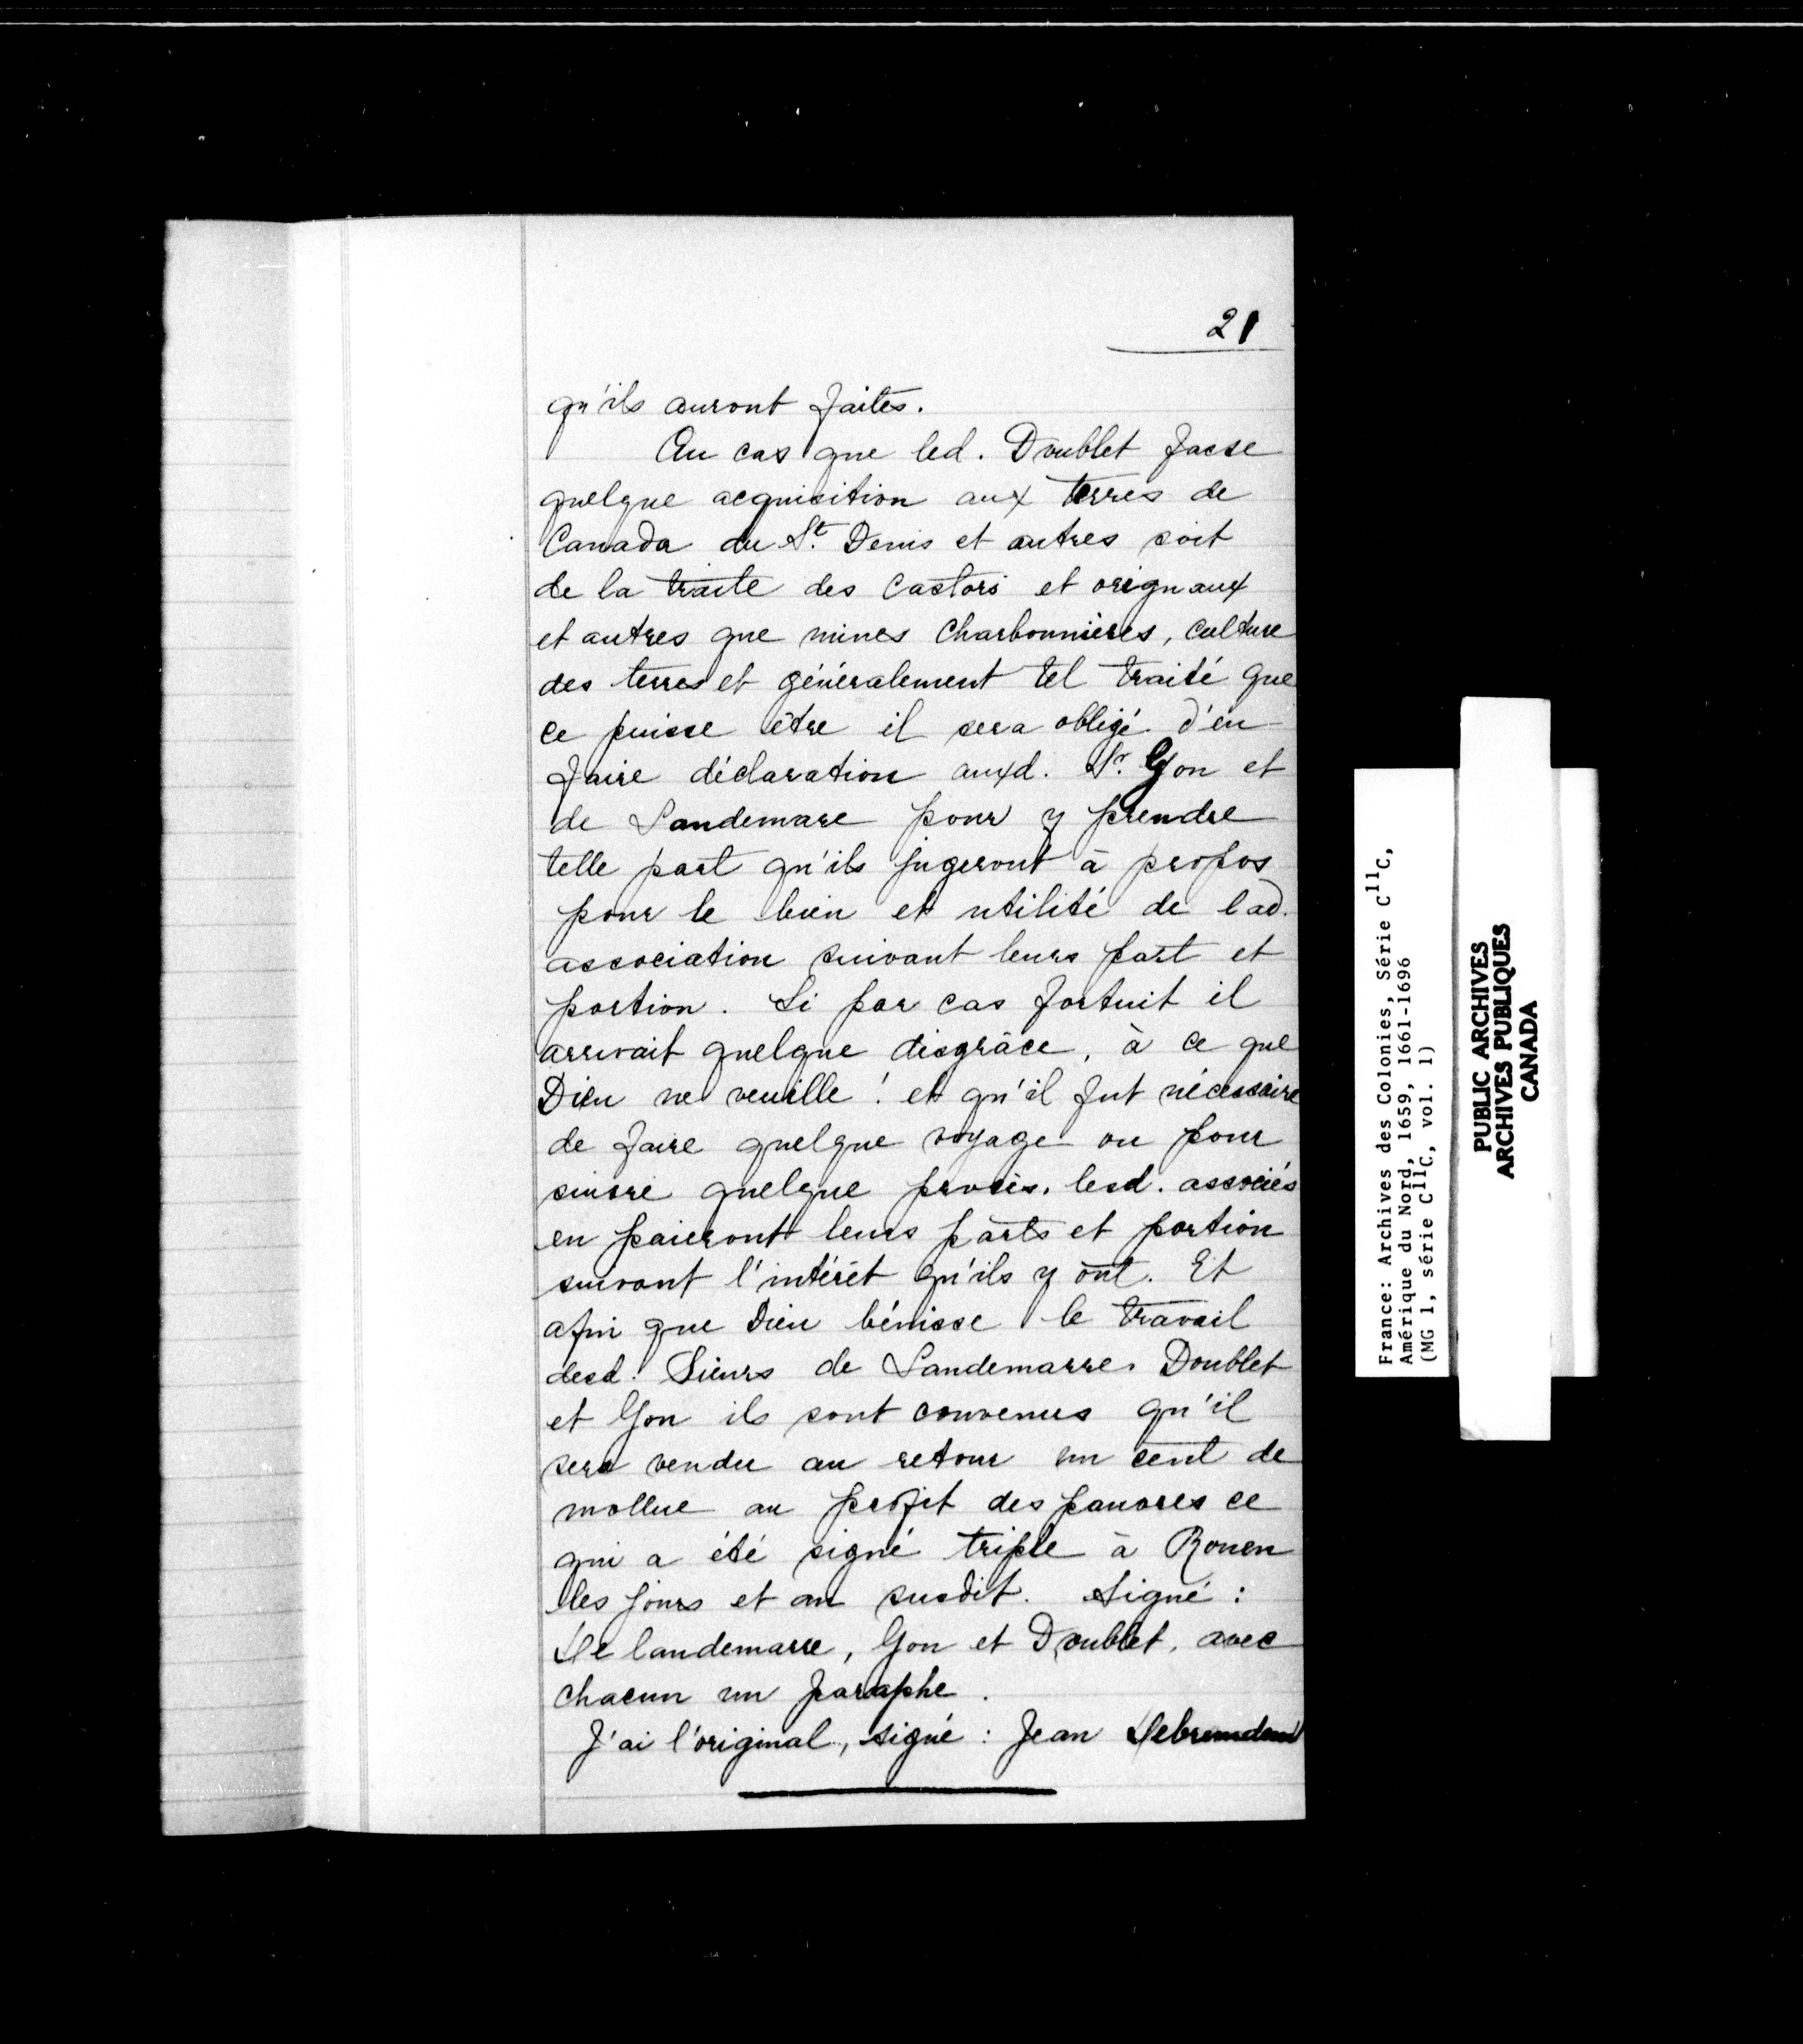 21
qu'ils auront faites.
Au cas que led. Doublet fasse
quelque acquisition aux terres de
Canada du St. Denis et autres soit
de la traite des castors et orignaux
et autres que mines charbonnières, culture
des terres et généralement tel traité que
ce puisse être il sera obligé d'en
faire déclaration auxd. Sr. Gon et
de Landemare pour y prendre
telle part qu'ils jugeront à propos
pour le bien et utilité de lad.
association suivant leurs part et
portion. Si par cas fortuit il
arrivait quelque disgrâce, à ce que
Dieu ne veuille ! et qu'il fut nécessaire
de faire quelque voyage ou pour
suivre quelque procès, lesd. associés
en paieront leurs parts et portion
suivant l'intérêt qu'ils y ont. Et
afin que Dieu bénisse le travail
desd. Sieurs de Landemarre, Doublet
et Gon ils sont convenus qu'il
sera vendu au retour un cent de
mollue au profit des pauvres ce
qui a été signé triple à Rouen
les jours et an susdit. Signé :
De landemarre, Gon et Doublet, avec
chacun un paraphe.
J'ai l'original, signé : Jean
France: Archives des Colonies, Série C11C,
Amérique du Nord, 1659, 1661-1696
(MG 1, série C11C, vol. 1)
PUBLIC ARCHIVES
ARCHIVES PUBLIQUES
CANADA